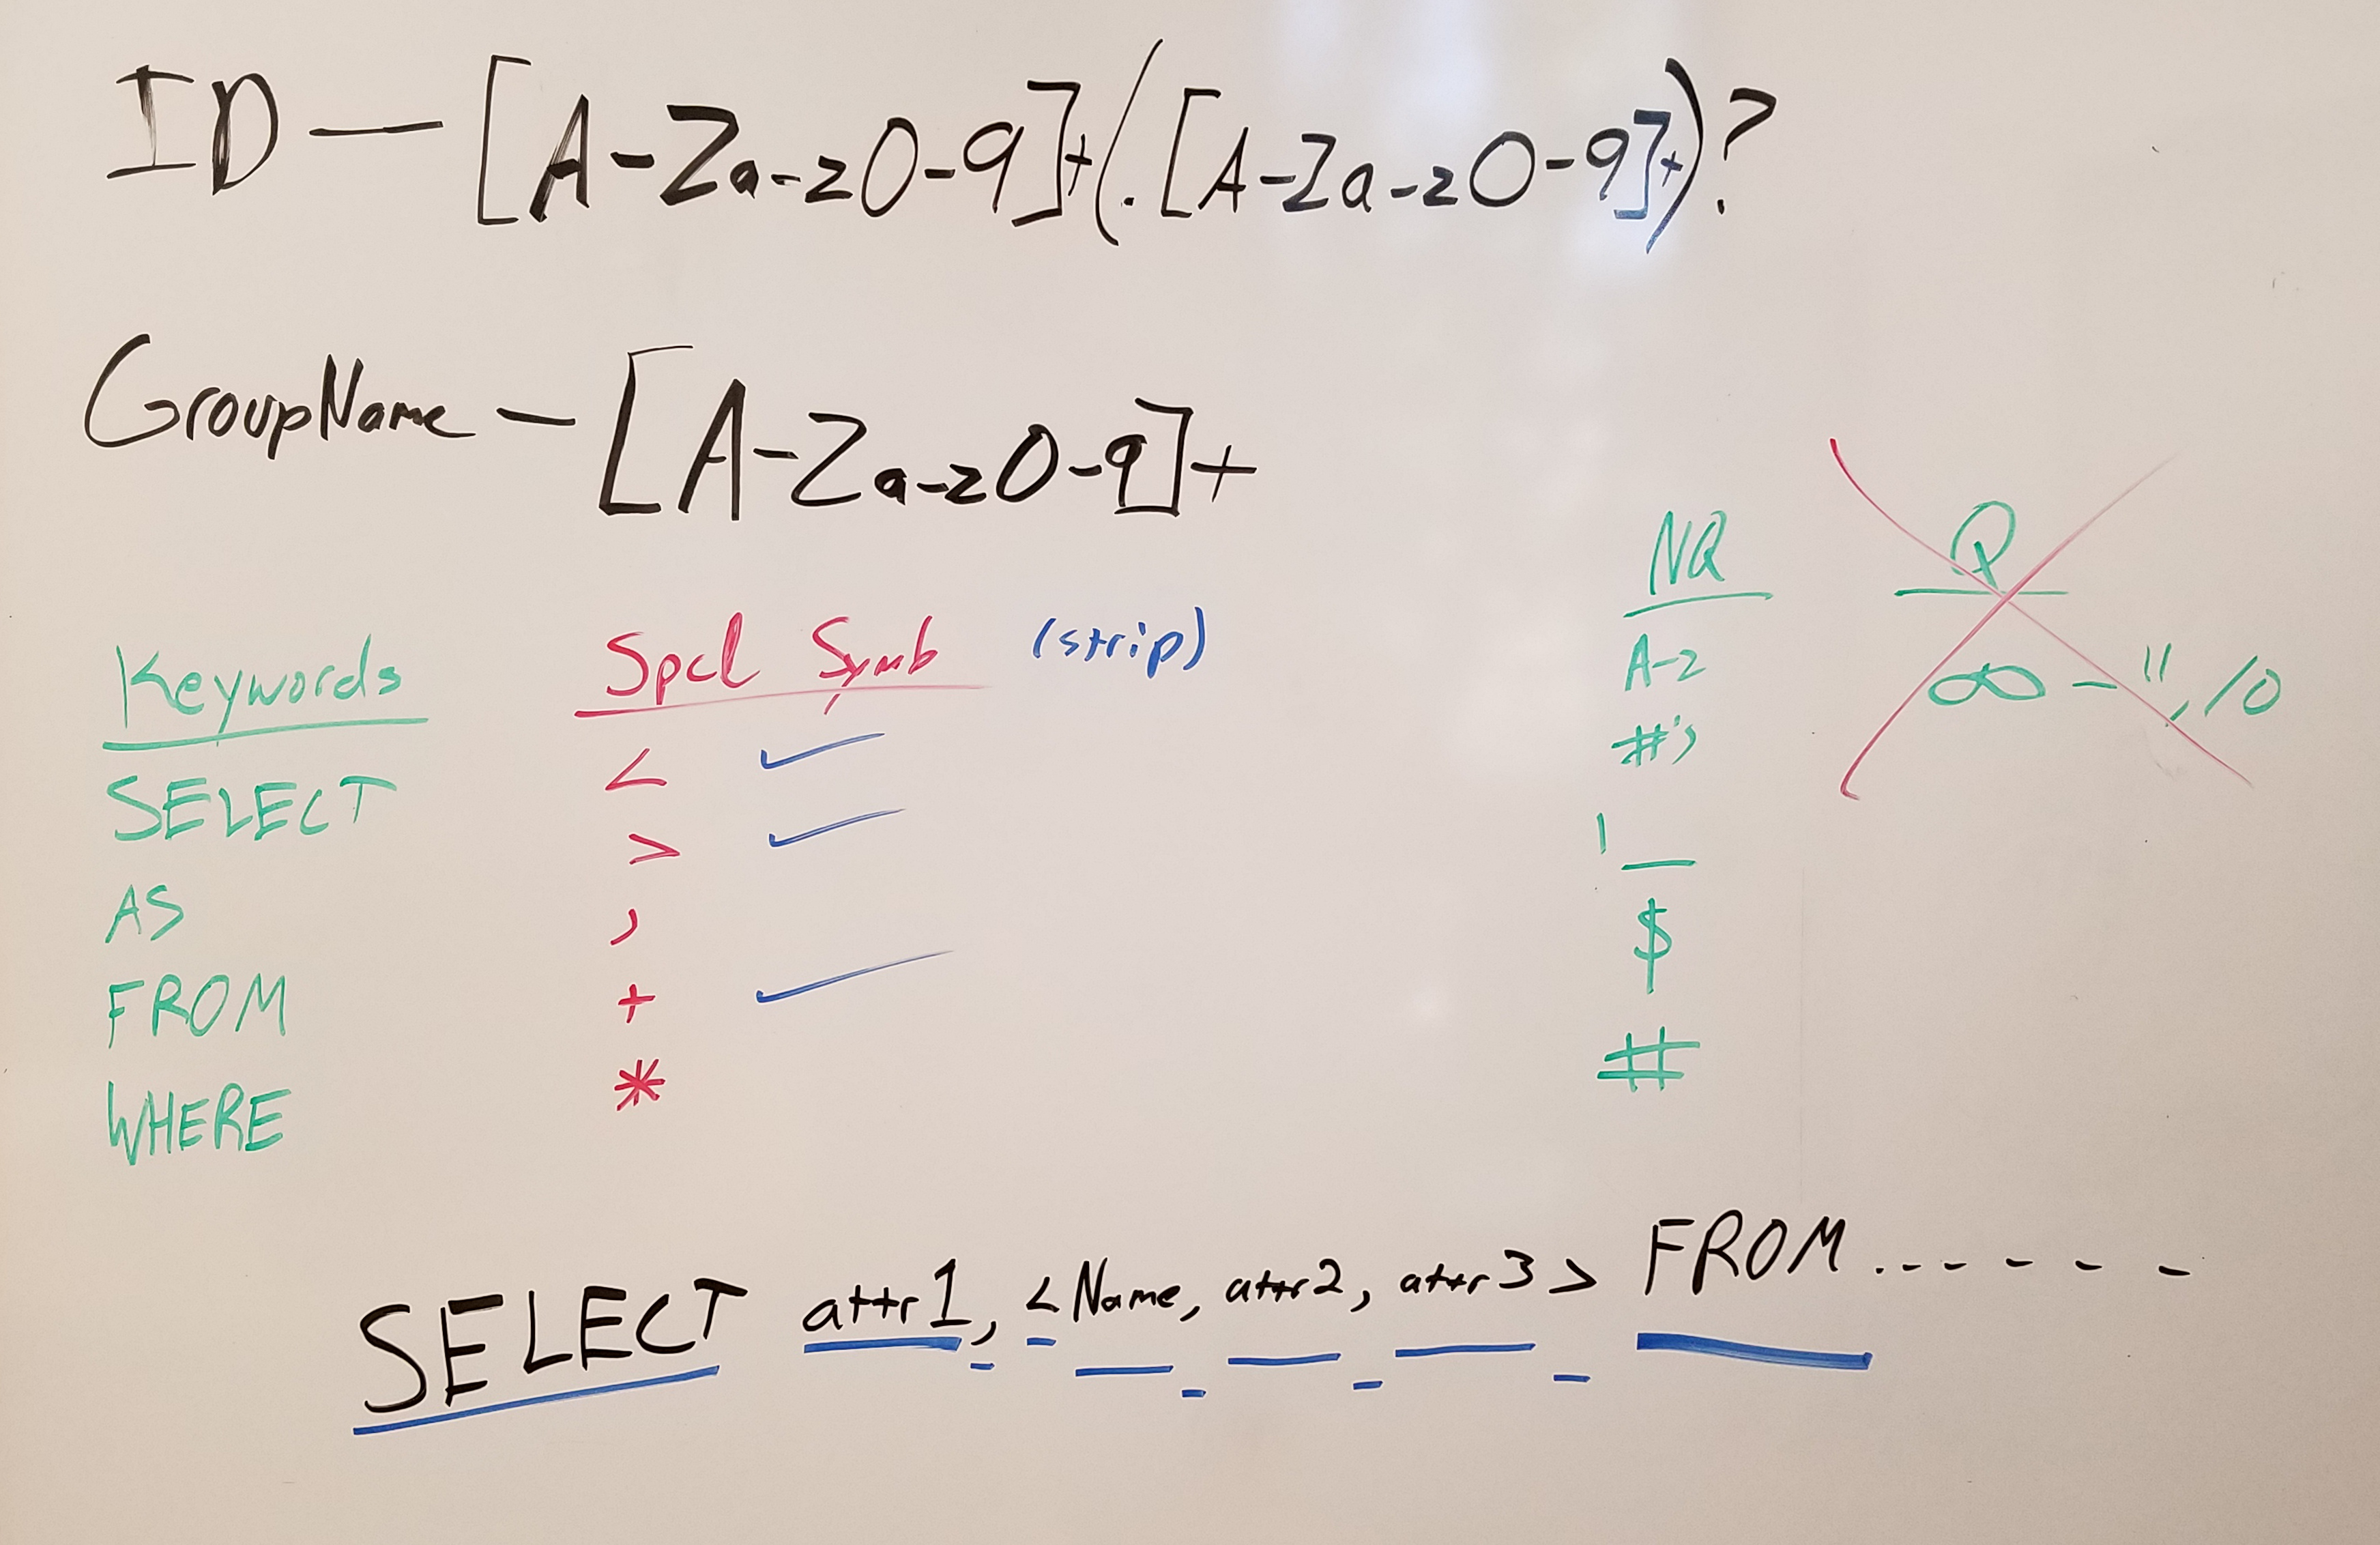 ID — [A-Za-z0-9]+(.[A-Za-z0-9]+)?
GroupName — [A-Za-z0-9]+
Keywords
SELECT
AS
FROM
WHERE
Spcl Symb (strip)
< ✓
> ✓
,
+ ✓
*
NQ
A-z
#'s
_
$
#
Q
∞ - ", \0
SELECT attr1, <Name, attr2, attr3> FROM . - - - - -